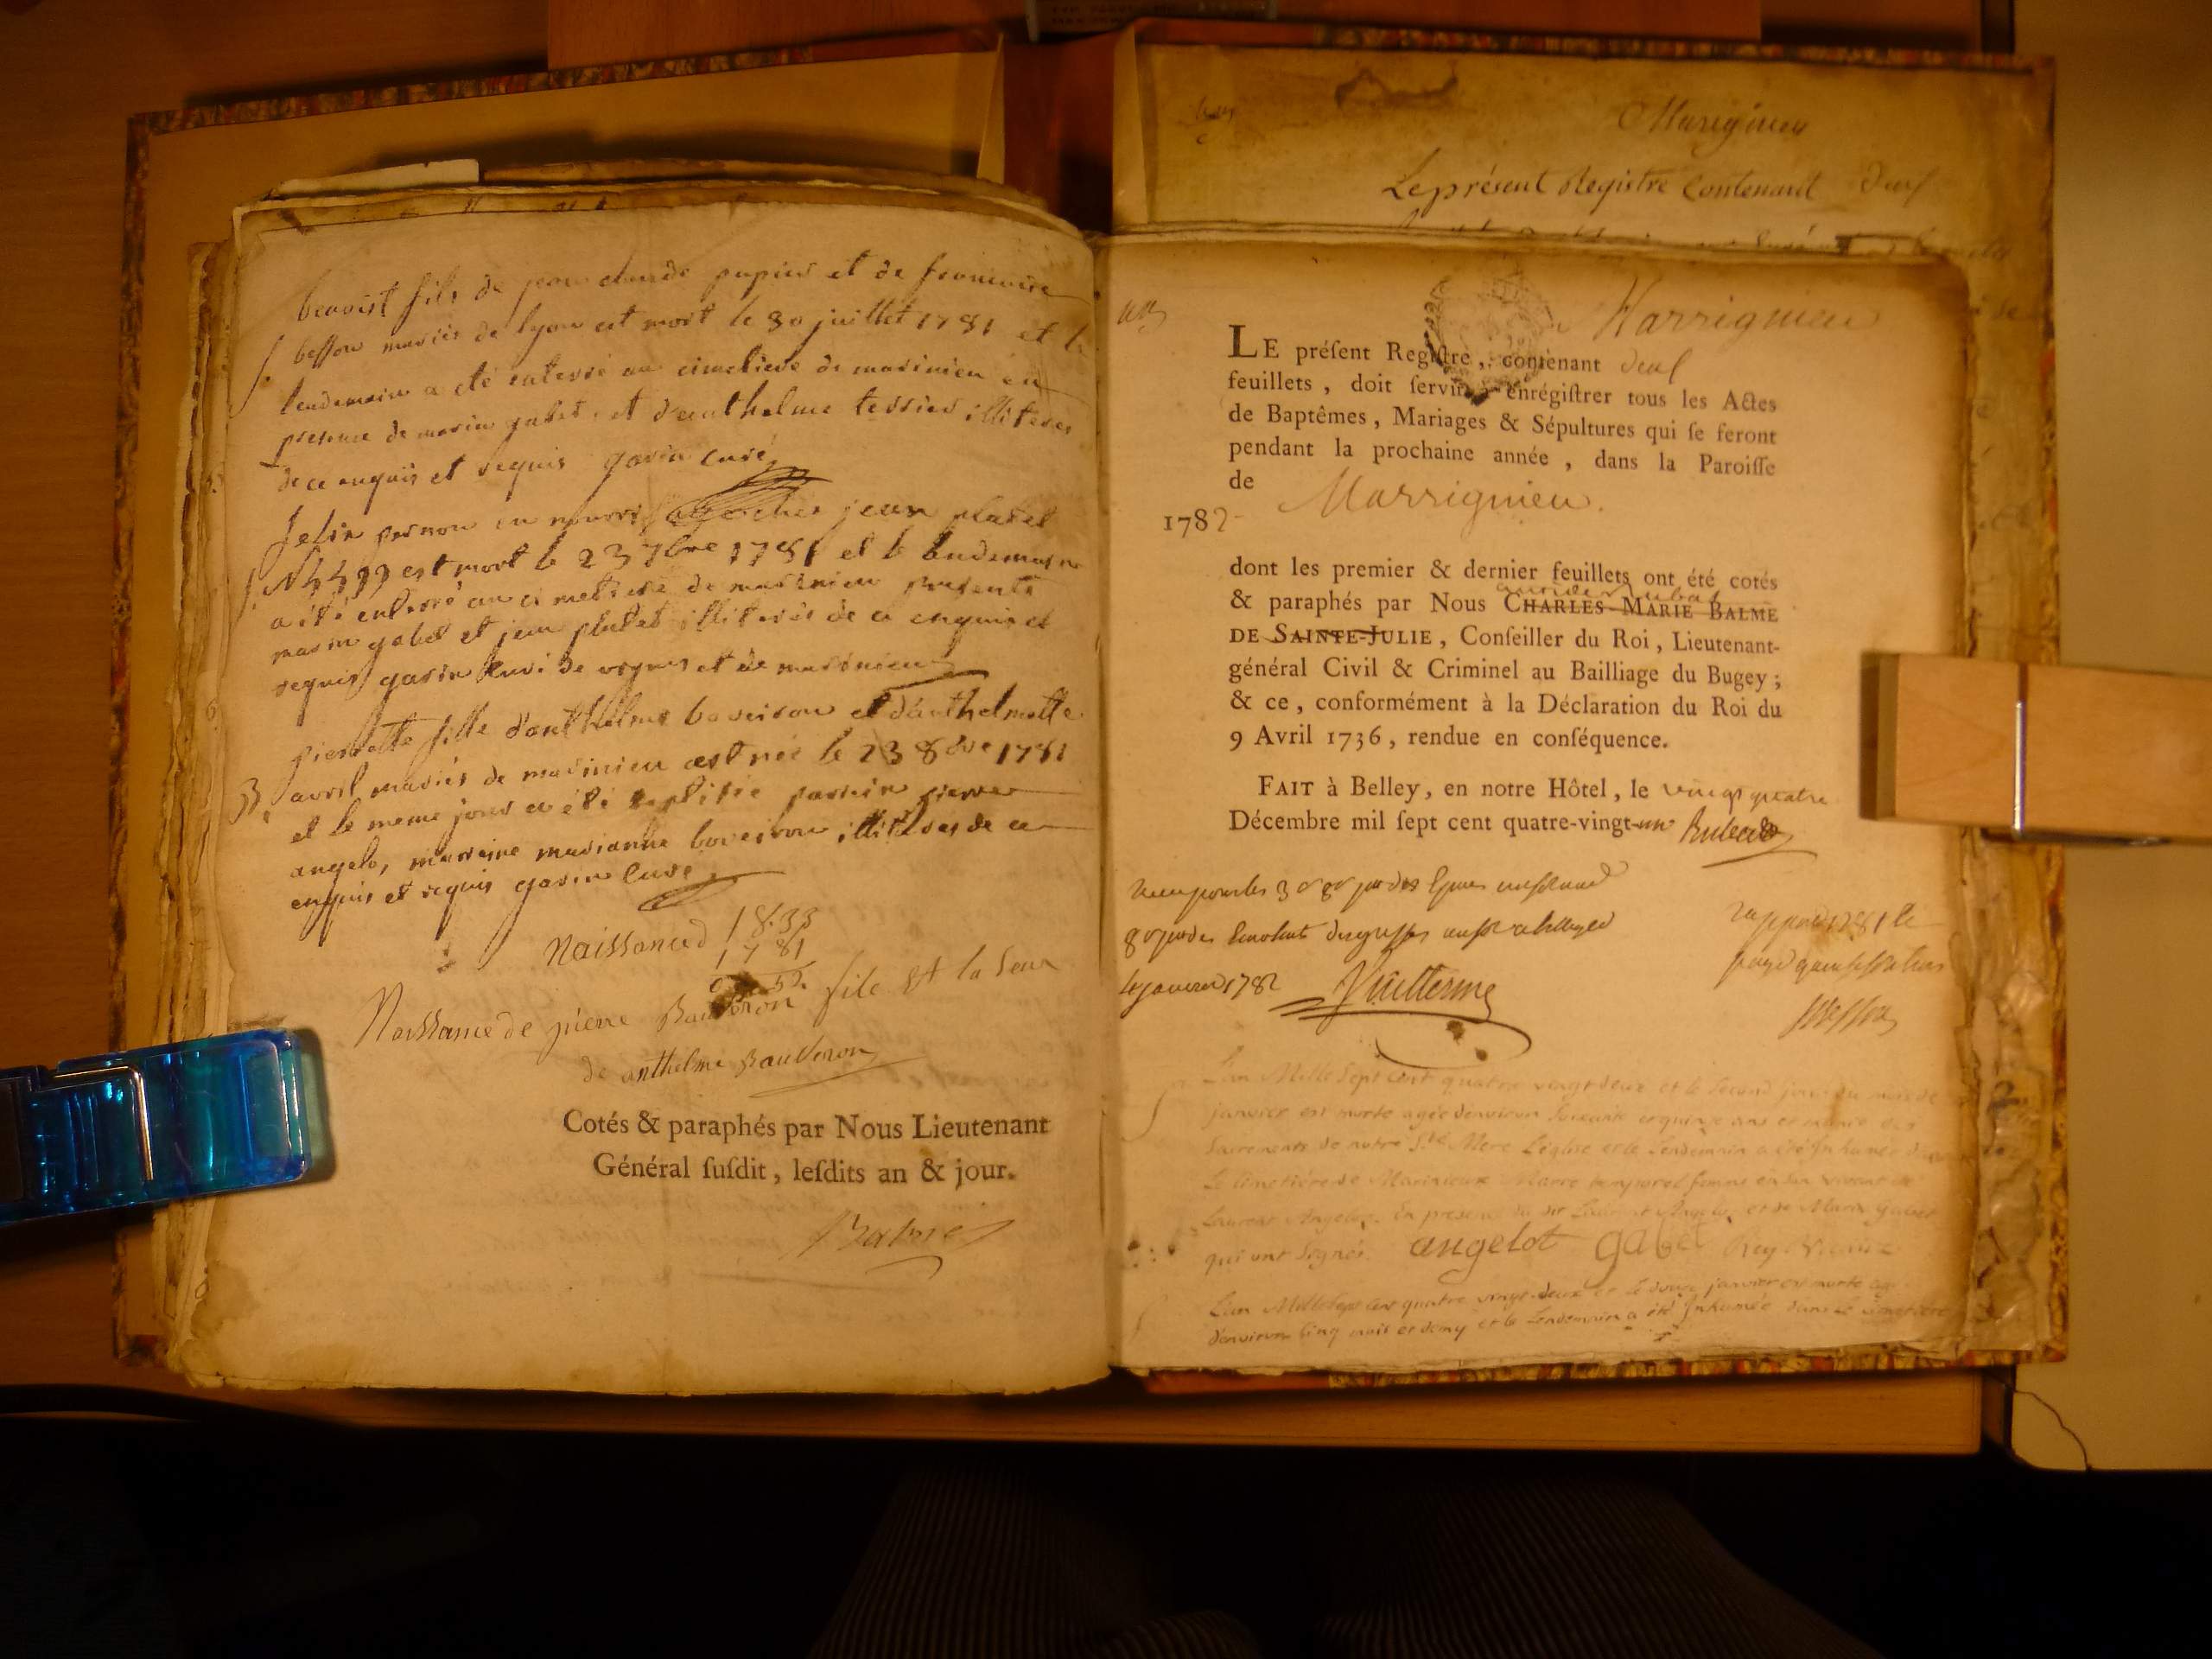 benoist fils de jean claude papier et de francoise
besson mariés de lyon est mort le 30 juillet 1781 et le
lendemain a été enterré au cimetiere de marinieu en
presence de marin gabet et d'anthelme terrier illiteres
de ce enquis et requis garin curé
felix pernon en nourrice chez jean platet
N est mort le 23 7bre 1781 et le lendemain
a été enterré au cimetiere de marinieu presents
marin gabet et jean platet illiterés de ce enquis et
requis garin curé de vognes et de marinieu
pierrette fille d'anthelme boveiron et d'anthelmette
B avril mariés de marinieu est née le 23 8bre 1781
et le meme jour a été baptisée parrein pierre
angelo, marreine marianne boveiron illiteres de ce
enquis et requis garin curé
Naissance 1833
1781
52
Naissance de pierre Bauveron file et la seur
de anthelme Bauveron
Cotés & paraphés par Nous Lieutenant
Général susdit, lesdits an & jour.
Balme
Marignieu
Le présent Registre Contenant deux
Marrignieu
LE présent Registre, contenant deux
feuillets, doit servir à enrégistrer tous les Actes
de Baptêmes, Mariages & Sépultures qui se feront
pendant la prochaine année, dans la Paroisse
de Marrignieu.
1782
dont les premier & dernier feuillets ont été cotés
& paraphés par Nous CHARLES-MARIE BALME
DE SAINTE-JULIE, Conseiller du Roi, Lieutenant-
général Civil & Criminel au Bailliage du Bugey;
& ce, conformément à la Déclaration du Roi du
9 Avril 1736, rendue en conséquence.
FAIT à Belley, en notre Hôtel, le vingt quatre
Décembre mil sept cent quatre-vingt-un
janvier 1782 Vuillerme
L'an Mille Sept Cent quatre vingt deux et le Second jour du mois de
janvier est morte agée d'environ Soixante et quinze ans et munie des
Sacrements de notre Ste Mere L'église et le Lendemain a été Inhumée dans
Le Cimetière de Marinieux Marie temporel femme en son vivant de
Laurent Angelot. En presence du dit Laurent Angelot et de Marin Gabet
qui ont Signés. angelot gabet Rey Vicaire
L'an Mille Sept Cent quatre vingt deux et le douze janvier est morte agée
d'environ Cinq mois et demy et le Lendemain a été Inhumée dans Le Cimetière